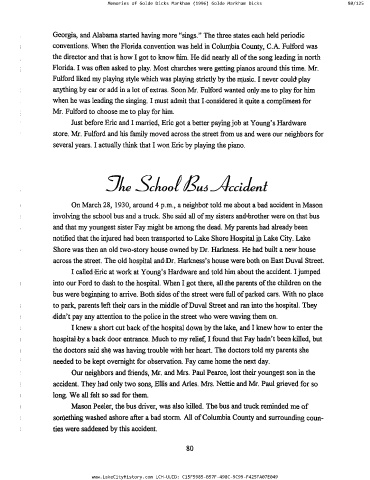 Memories of Golde Dicks Markham (1996) Golde Markham Dicks
80/125
Georgia, and Alabama started having more "sings." The three states each held periodic
conventions. When the Florida convention was held in Columbia County, C.A. Fulford was
the director and that is how I got to know him. He did nearly all of the song leading in north
Florida. I was often asked to play. Most churches were getting pianos around this time. Mr.
Fulford liked my playing style which was playing strictly by the music. I never could play
anything by ear or add in a lot of extras. Soon Mr. Fulford wanted only me to play for him
when he was leading the singing. I must admit that I considered it quite a compliment for
Mr. Fulford to choose me to play for him.
Just before Eric and I married, Eric got a better paying job at Young's Hardware
store. Mr. Fulford and his family moved across the street from us and were our neighbors for
several years. I actually think that I won Eric by playing the piano.
The School Bus Accident
On March 28, 1930, around 4 p.m., a neighbor told me about a bad accident in Mason
involving the school bus and a truck. She said all of my sisters and brother were on that bus
and that my youngest sister Fay might be among the dead. My parents had already been
notified that the injured had been transported to Lake Shore Hospital in Lake City. Lake
Shore was then an old two-story house owned by Dr. Harkness. He had built a new house
across the street. The old hospital and Dr. Harkness's house were both on East Duval Street.
I called Eric at work at Young's Hardware and told him about the accident. I jumped
into our Ford to dash to the hospital. When I got there, all the parents of the children on the
bus were beginning to arrive. Both sides of the street were full of parked cars. With no place
to park, parents left their cars in the middle of Duval Street and ran into the hospital. They
didn't pay any attention to the police in the street who were waving them on.
I knew a short cut back of the hospital down by the lake, and I knew how to enter the
hospital by a back door entrance. Much to my relief, I found that Fay hadn't been killed, but
the doctors said she was having trouble with her heart. The doctors told my parents she
needed to be kept overnight for observation. Fay came home the next day.
Our neighbors and friends, Mr. and Mrs. Paul Pearce, lost their youngest son in the
accident. They had only two sons, Ellis and Arles. Mrs. Nettie and Mr. Paul grieved for so
long. We all felt so sad for them.
Mason Peeler, the bus driver, was also killed. The bus and truck reminded me of
something washed ashore after a bad storm. All of Columbia County and surrounding coun-
ties were saddened by this accident.
80